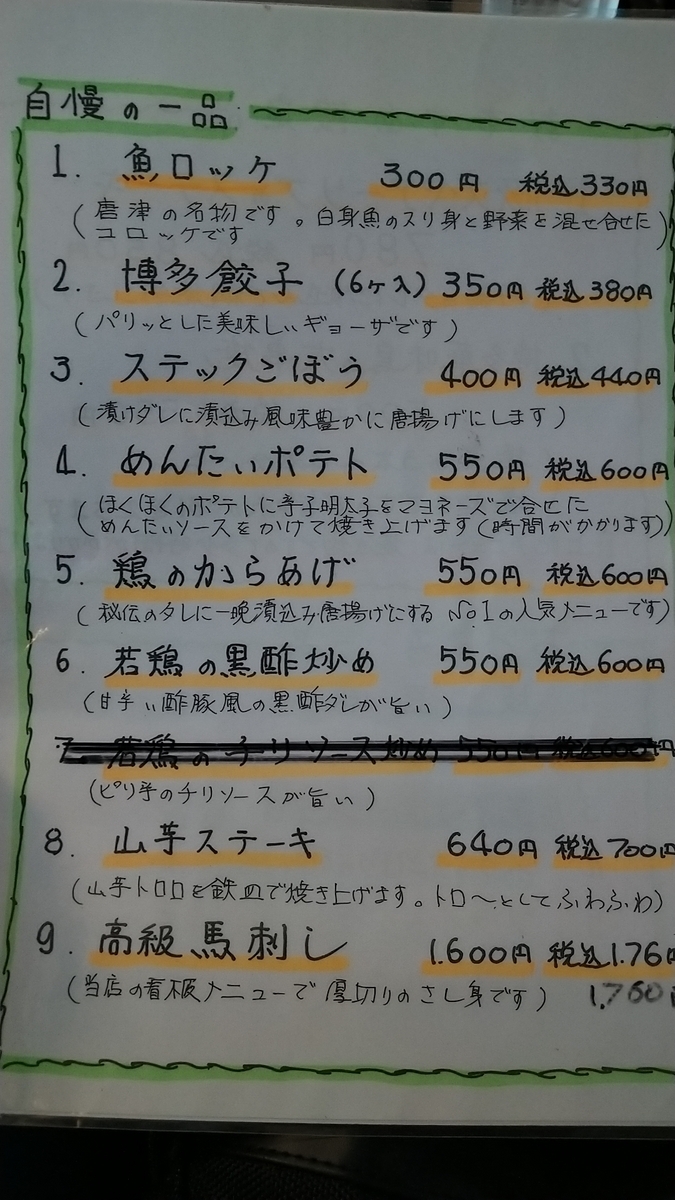 自慢の一品
1. 魚ロッケ 300円 税込330円
(唐津の名物です。白身魚のスリ身と野菜を混ぜ合せた
コロッケです)
2. 博多餃子 (6ヶ入) 350円 税込380円
(パリッとした美味しいギョーザです)
3. ステックごぼう 400円 税込440円
(漬けダレに漬込み風味豊かに唐揚げにします)
4. めんたいポテト 550円 税込600円
(ほくほくのポテトに辛子明太子をマヨネーズで合せた
めんたいソースをかけて焼き上げます(時間がかかります))
5. 鶏のからあげ 550円 税込600円
(秘伝のタレに一晩漬込み唐揚げにする No1の人気メニューです)
6. 若鶏の黒酢炒め 550円 税込600円
(甘辛い酢豚風の黒酢ダレが旨い)
7. 若鶏のチリソース炒め 550円 税込600円
(ピリ辛のチリソースが旨い)
8. 山芋ステーキ 640円 税込700円
(山芋トロロを鉄皿で焼き上げます。トロ〜としてふわふわ)
9. 高級馬刺し 1.600円 税込1.76
(当店の看板メニューで厚切りのさし身です) 1,760